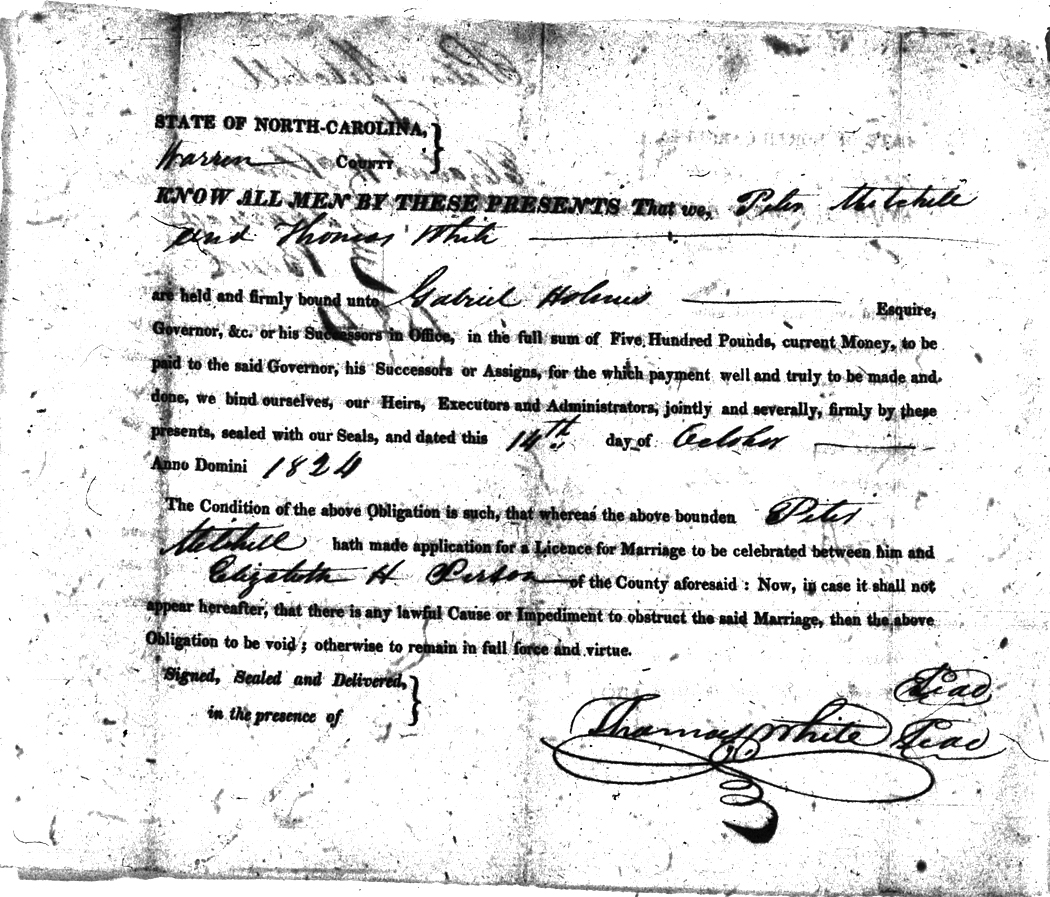 STATE OF NORTH-CAROLINA,
Warren COUNTY
KNOW ALL MEN BY THESE PRESENTS That we, Peter Mitchell
and Thomas White
are held and firmly bound unto Gabriel Holmes Esquire,
Governor, &c. or his Successors in Office, in the full sum of Five Hundred Pounds, current Money, to be
paid to the said Governor, his Successors or Assigns, for the which payment well and truly to be made and
done, we bind ourselves, our Heirs, Executors and Administrators, jointly and severally, firmly by these
presents, sealed with our Seals, and dated this 14th day of October
Anno Domini 1824
The Condition of the above Obligation is such, that whereas the above bounden Peter
Mitchell hath made application for a Licence for Marriage to be celebrated between him and
Elizabeth H Person of the County aforesaid : Now, in case it shall not
appear hereafter, that there is any lawful Cause or Impediment to obstruct the said Marriage, then the above
Obligation to be void ; otherwise to remain in full force and virtue.
Signed, Sealed and Delivered,
in the presence of
Seal
Thomas White Seal